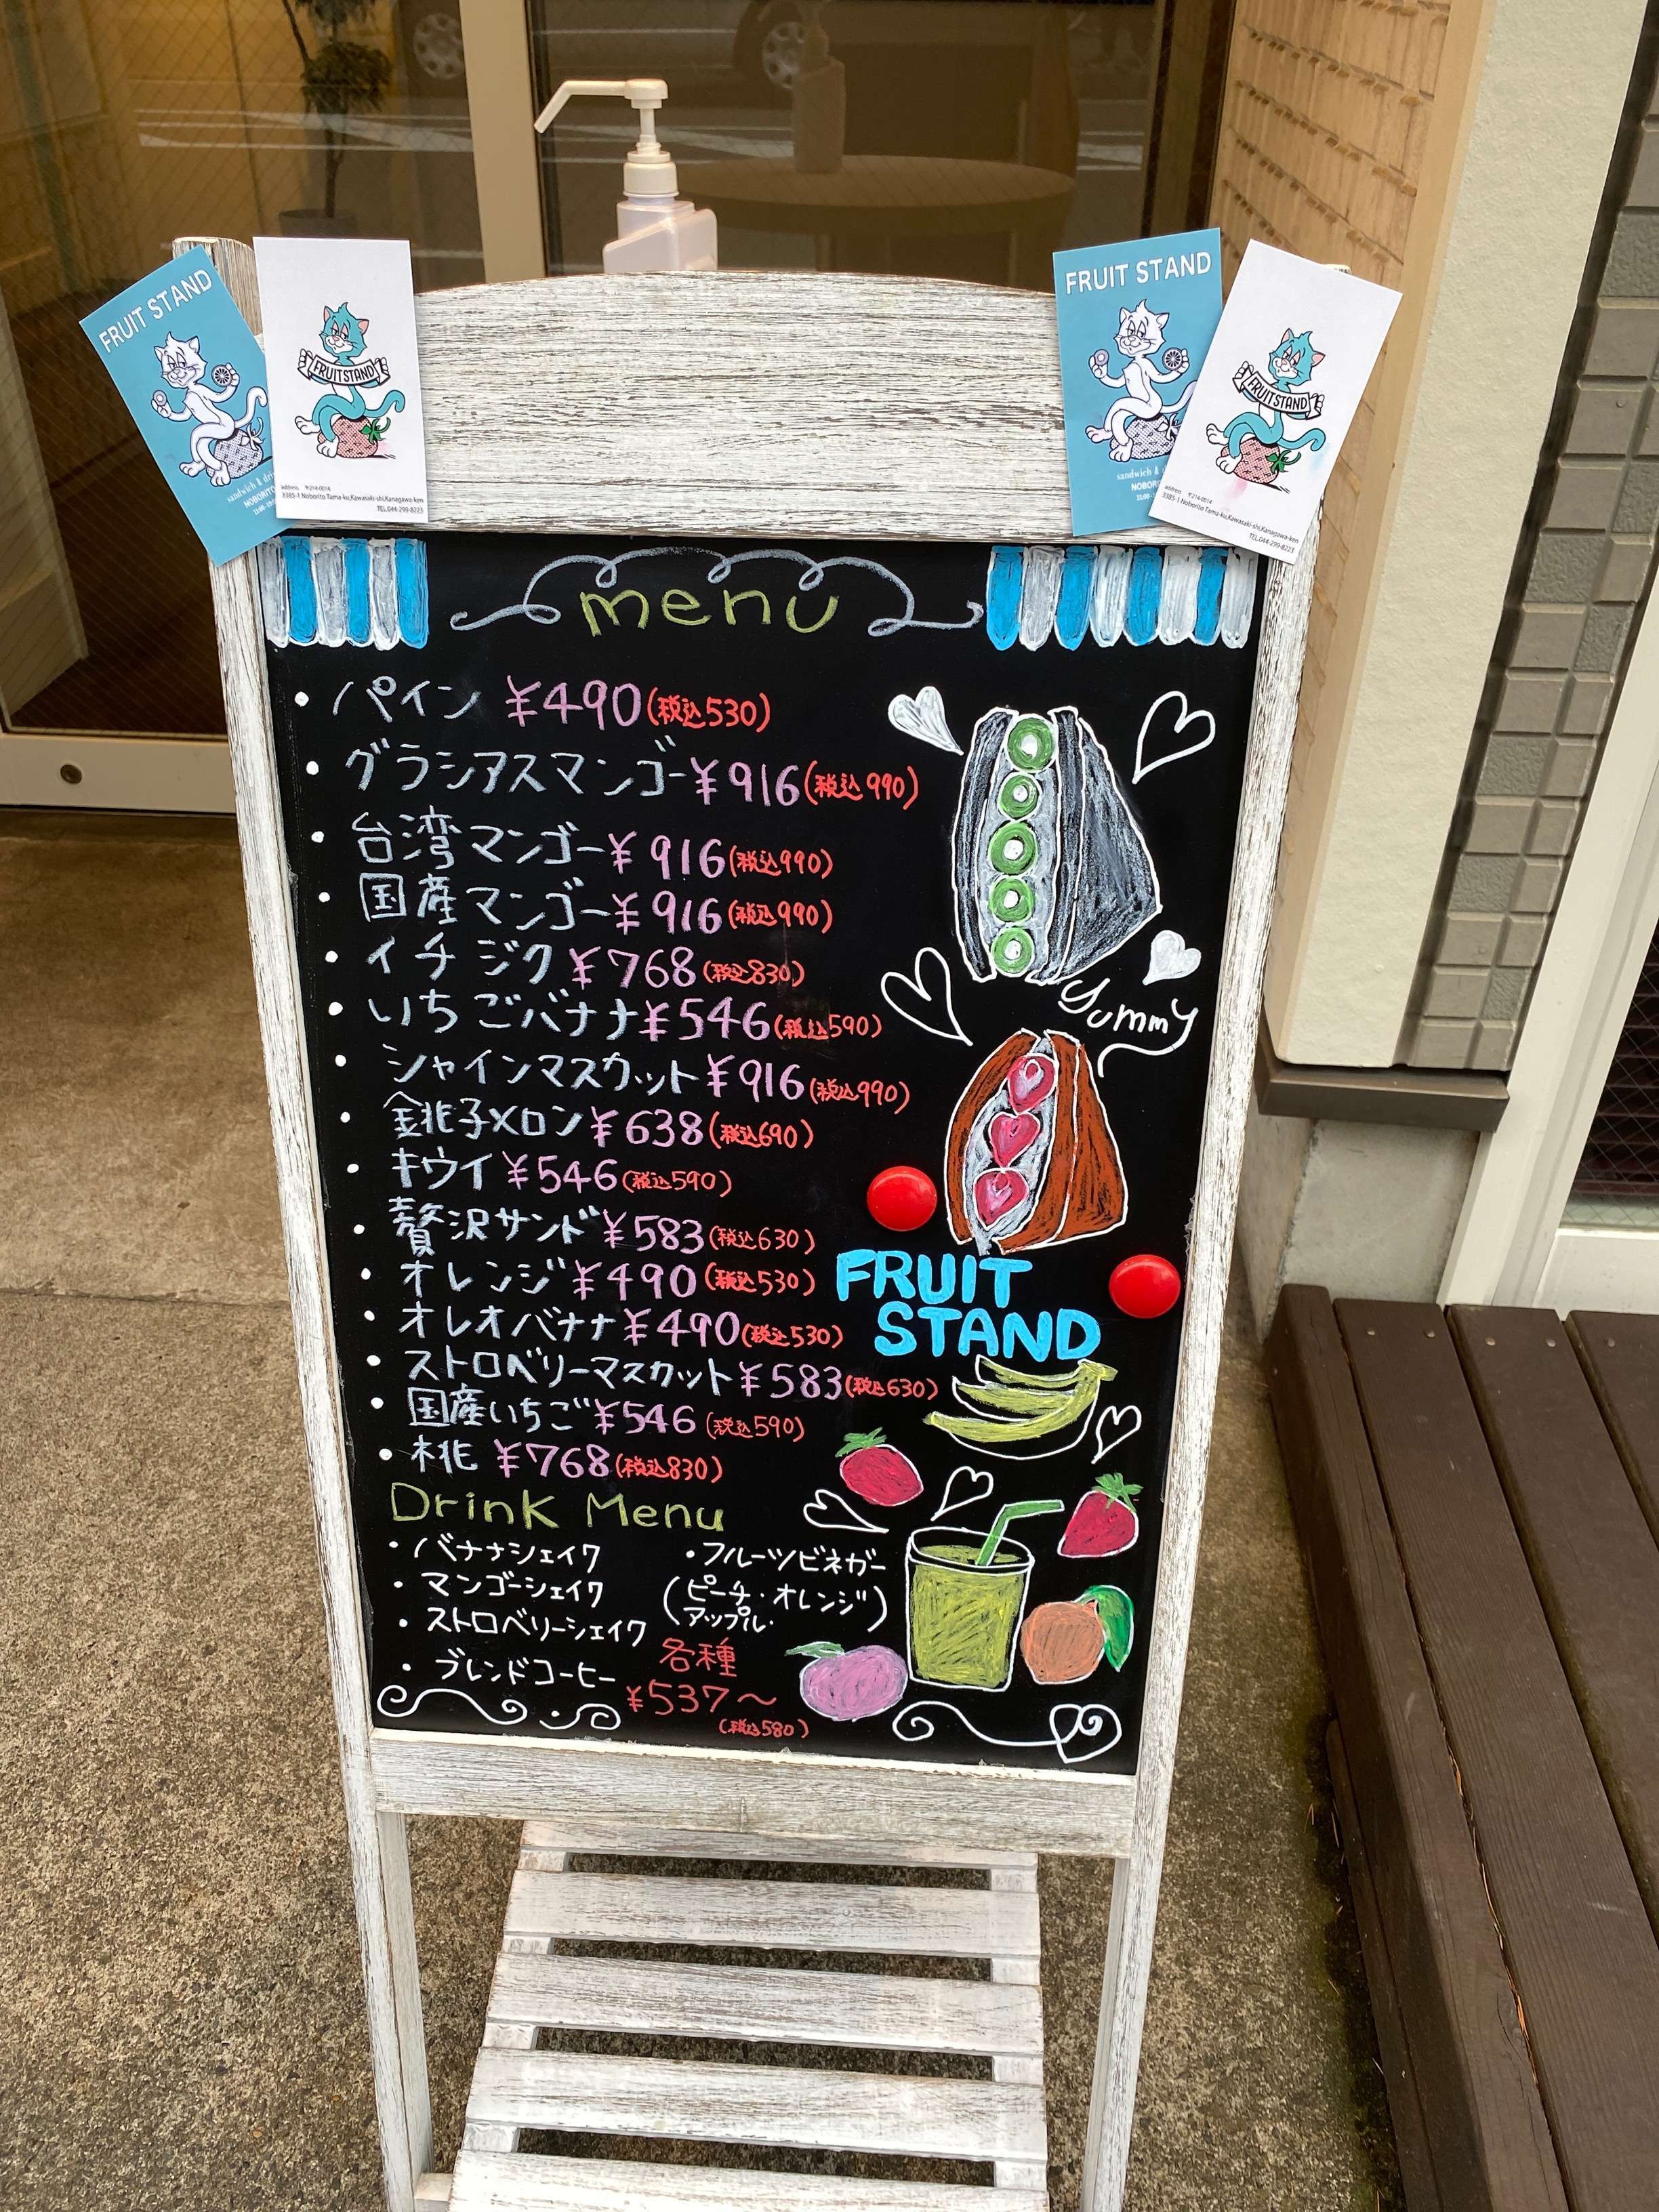 FRUIT STAND
FRUIT STAND
NOBORITO
FRUIT STAND
address 〒214-0014
3385-1 Noborito Tama-ku,Kawasaki-shi,Kanagawa-ken
TEL.044-299-8223
FRUIT STAND
sandwich &
FRUIT STAND
address 〒214-0014
3385-1 Noborito Tama-ku,Kawasaki-shi,Kanagawa-ken
TEL.044-299-8223
menu
・パイン ¥490(税込530)
・グラシアスマンゴー¥916(税込990)
・台湾マンゴー¥916(税込990)
・国産マンゴー¥916(税込990)
・イチジク¥768(税込830)
・いちごバナナ¥546(税込590)
・シャインマスカット¥916(税込990)
・銚子メロン¥638(税込690)
・キウイ¥546(税込590)
・贅沢サンド¥583(税込630)
・オレンジ¥490(税込530)
・オレオバナナ¥490(税込530)
・ストロベリーマスカット¥583(税込630)
・国産いちご¥546(税込590)
・桃 ¥768(税込830)
yummy
FRUIT
STAND
Drink Menu
・バナナシェイク
・マンゴーシェイク
・ストロベリーシェイク
・ブレンドコーヒー
・フルーツビネガー
(ピーチ・オレンジ
アップル・)
各種
¥537〜
(税込580)